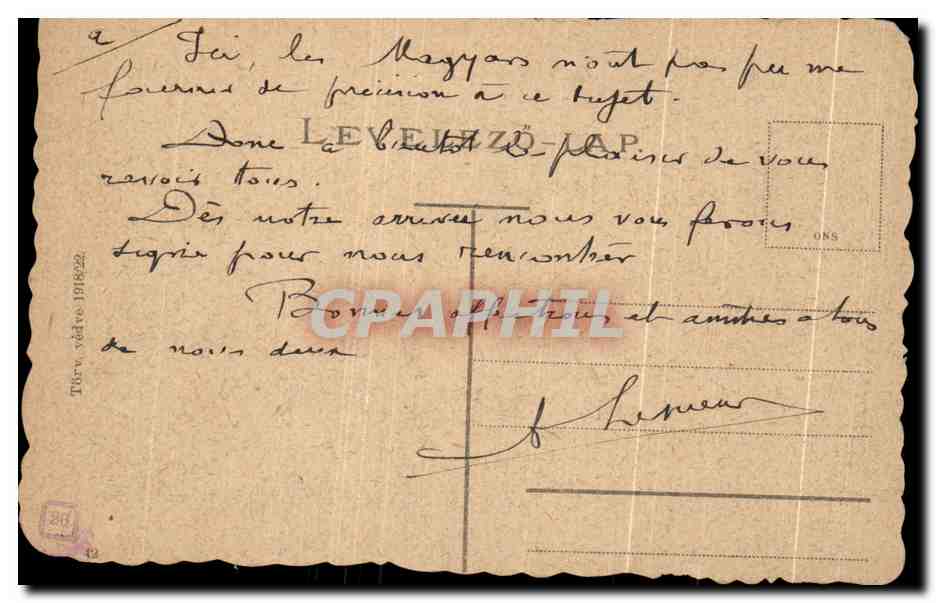 a/ Ici, les Magyars n'ont pas pu me
fournir de précision à ce sujet.
LEVELEZŐ-LAP
Donc à bientôt le plaisir de vous
revoir tous.
Dès notre arrivée nous vous ferons
signe pour nous rencontrer
ONS
Törv. védve 1918/22
CPAPHIL
Bonnes affections et amitiés a tous
de nous deux
26
42